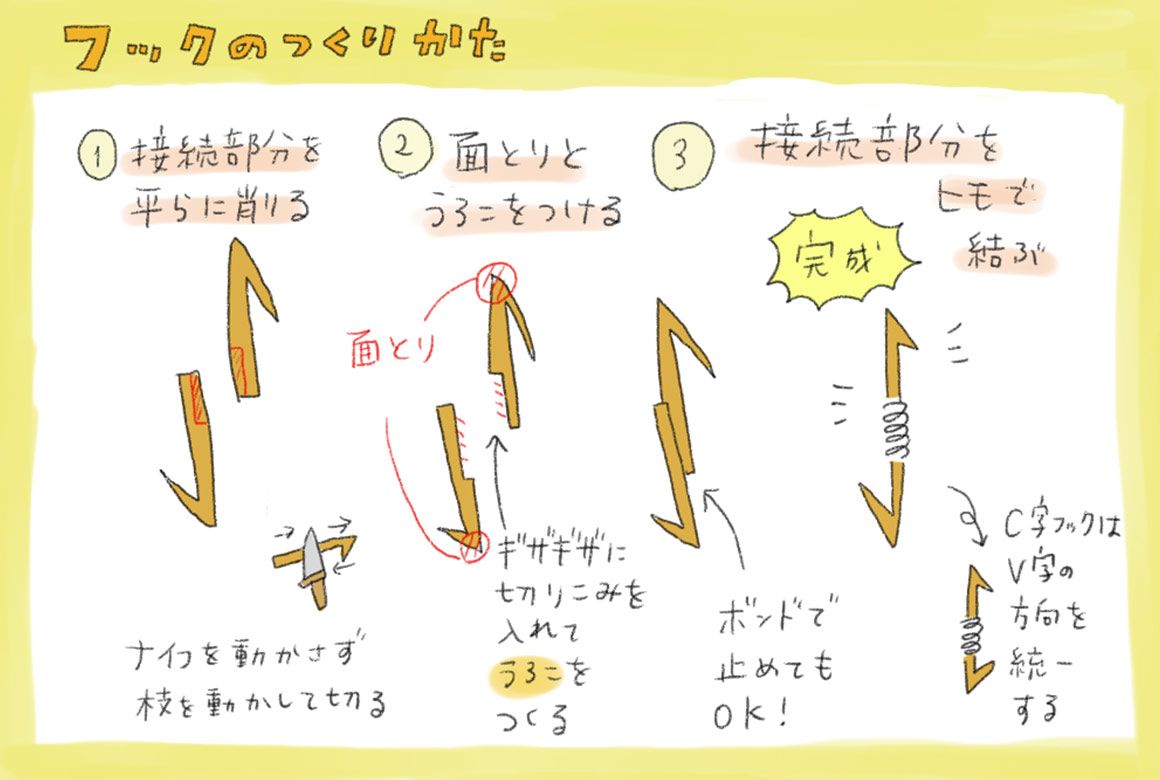 フックのつくりかた
1 接続部分を
平らに削る
ナイフを動かさず
枝を動かして切る
2 面とりと
うろこをつける
面とり
ギザギザに
切りこみを
入れて
うろこを
つくる
3 接続部分を
ヒモで
結ぶ
完成
ボンドで
止めても
OK!
C字フックは
V字の
方向を
統一
する